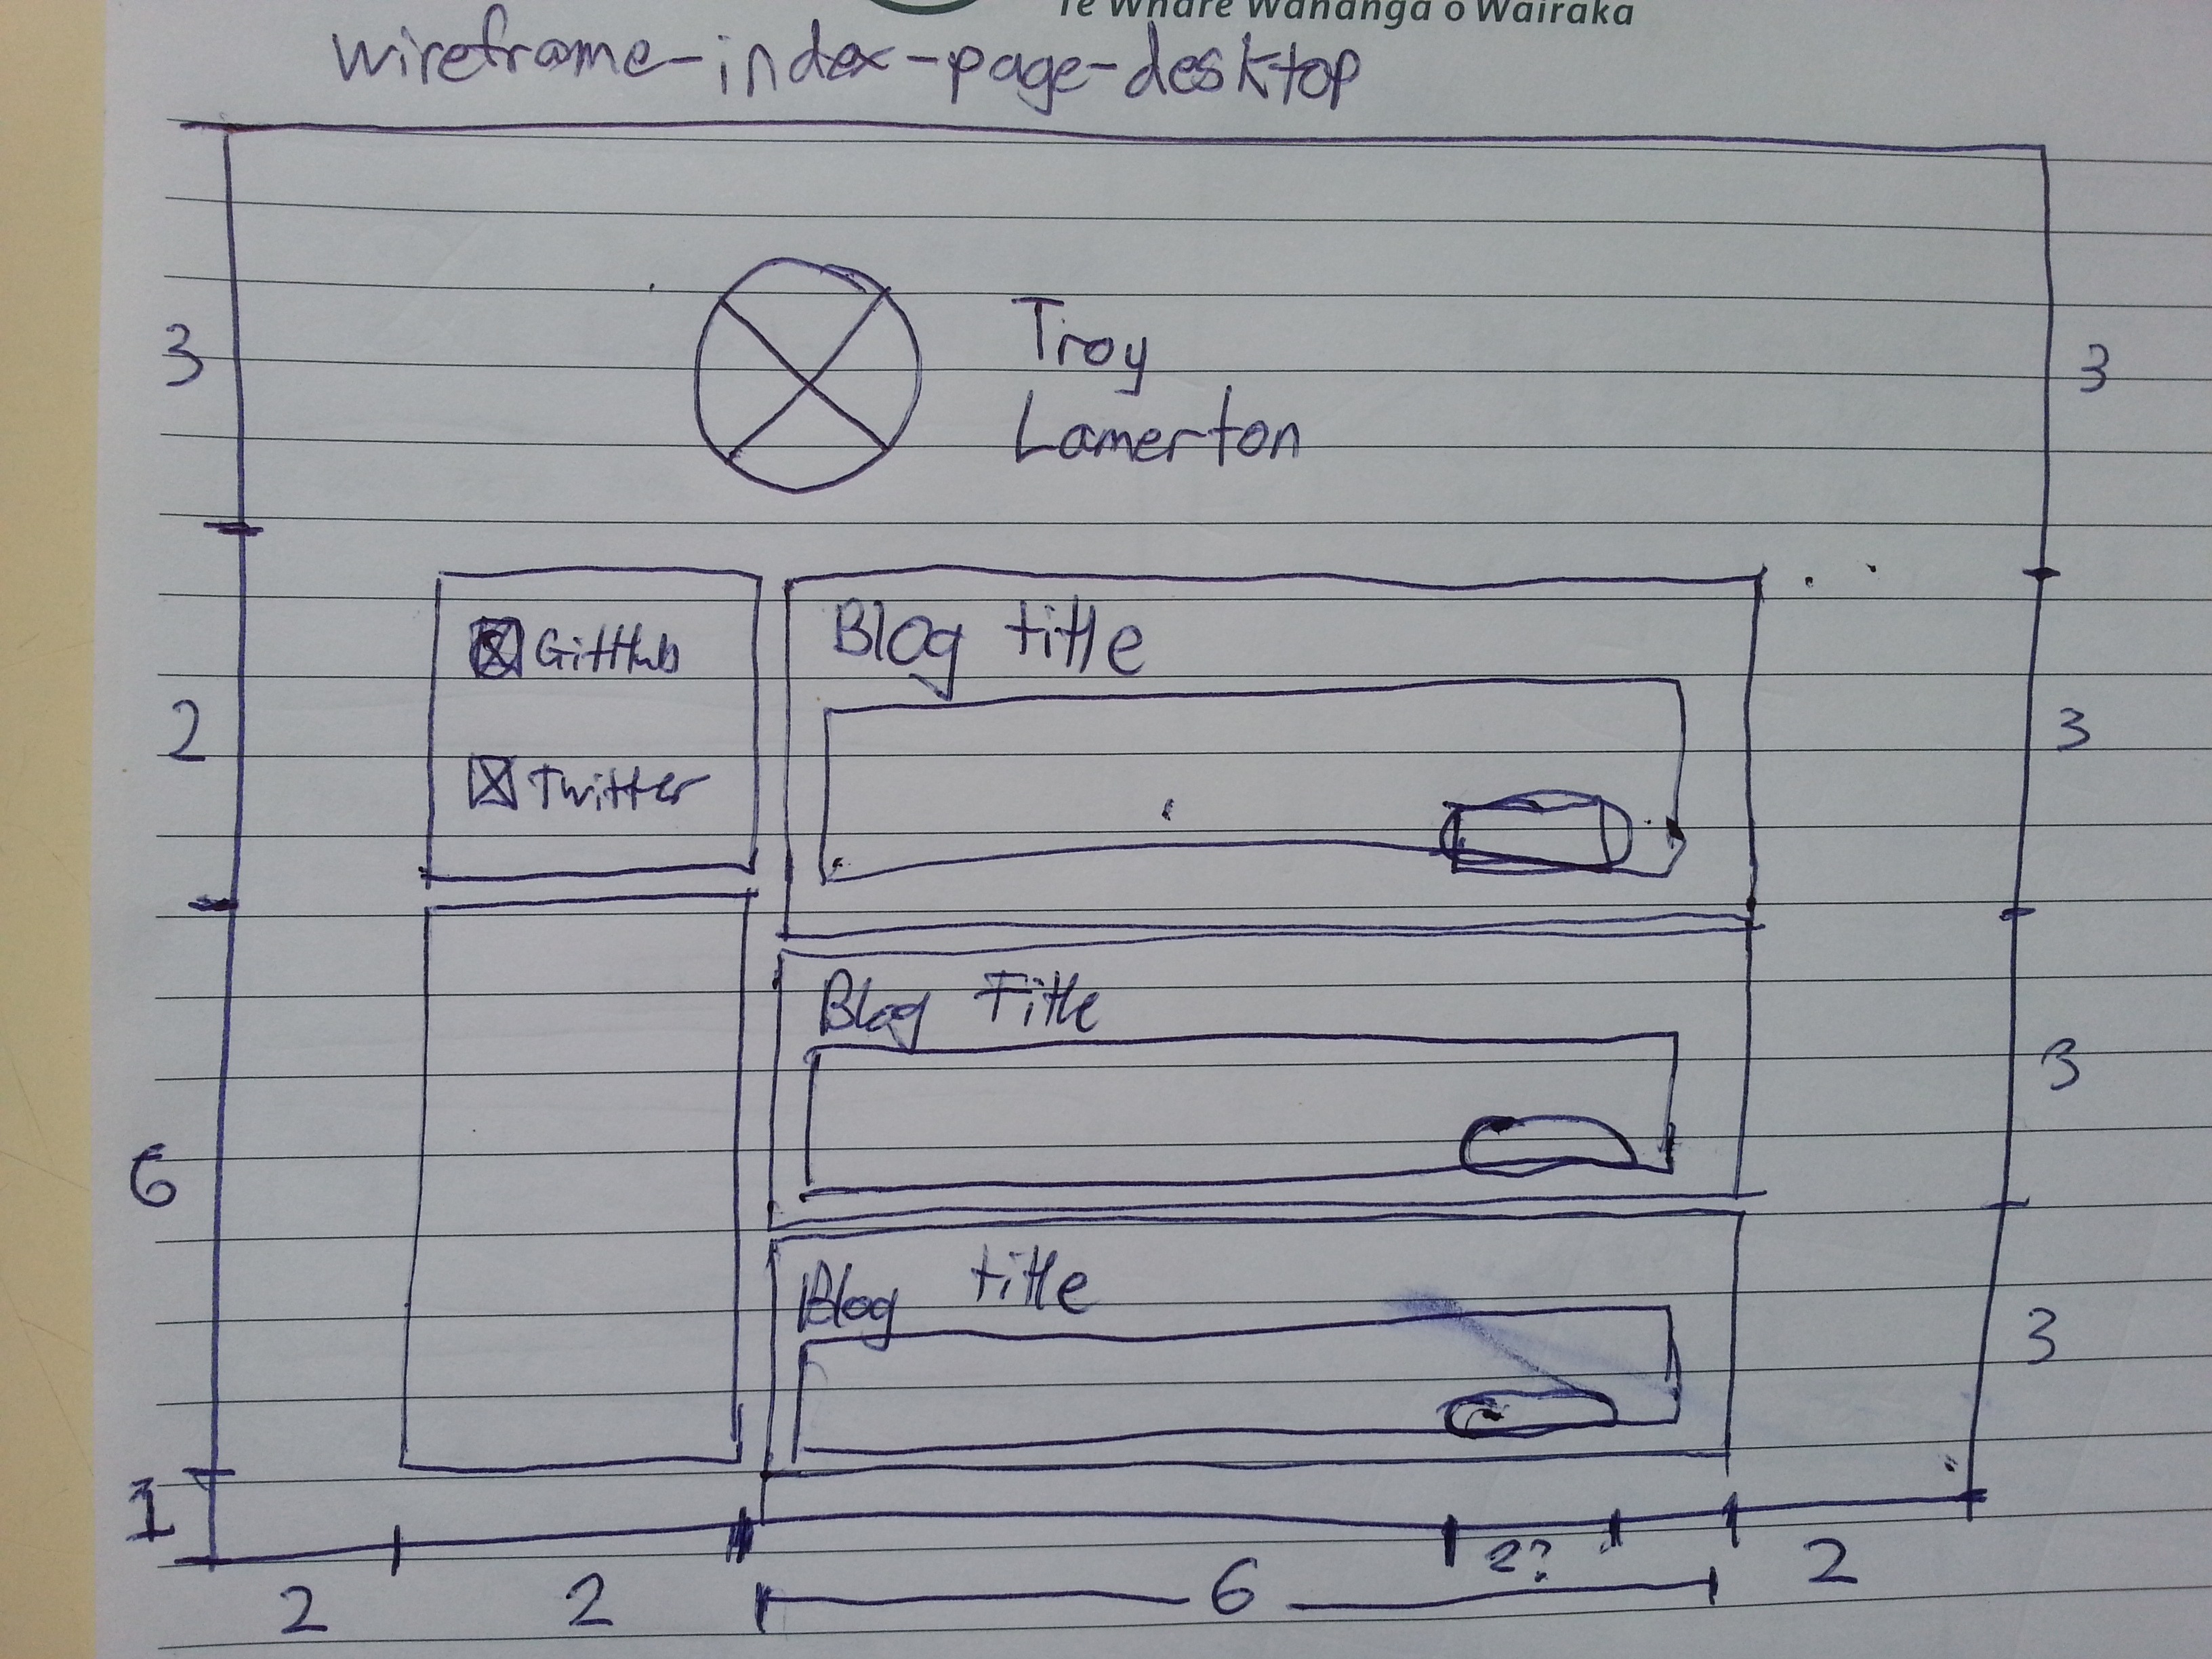 Te Whare Wānanga o Wairaka
wireframe-index-page-desktop
3
Troy
Lamerton
3
GitHub
Twitter
Blog title
2
3
Blog Title
6
3
Blog title
3
1
2
2
6
2?
2